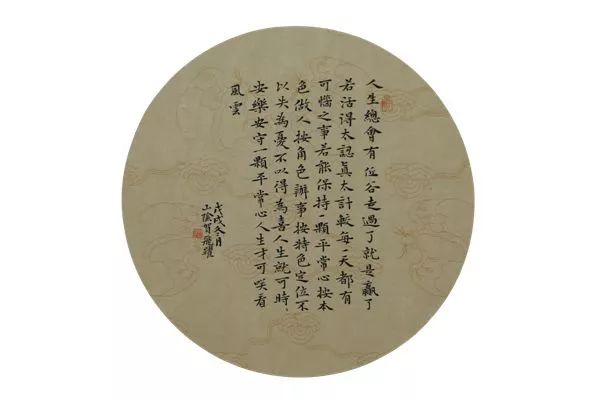 人生總會有位谷走過了就是贏了
若活得太認真太計較每一天都有
可惱之事若能保持一顆平常心按本
色做人按角色辦事按特色定位不
以失為憂不以得為喜人生就可時、
安樂安守一顆平常心人生才可咲看
風雲
戊戌冬月
山陰賀飛躍